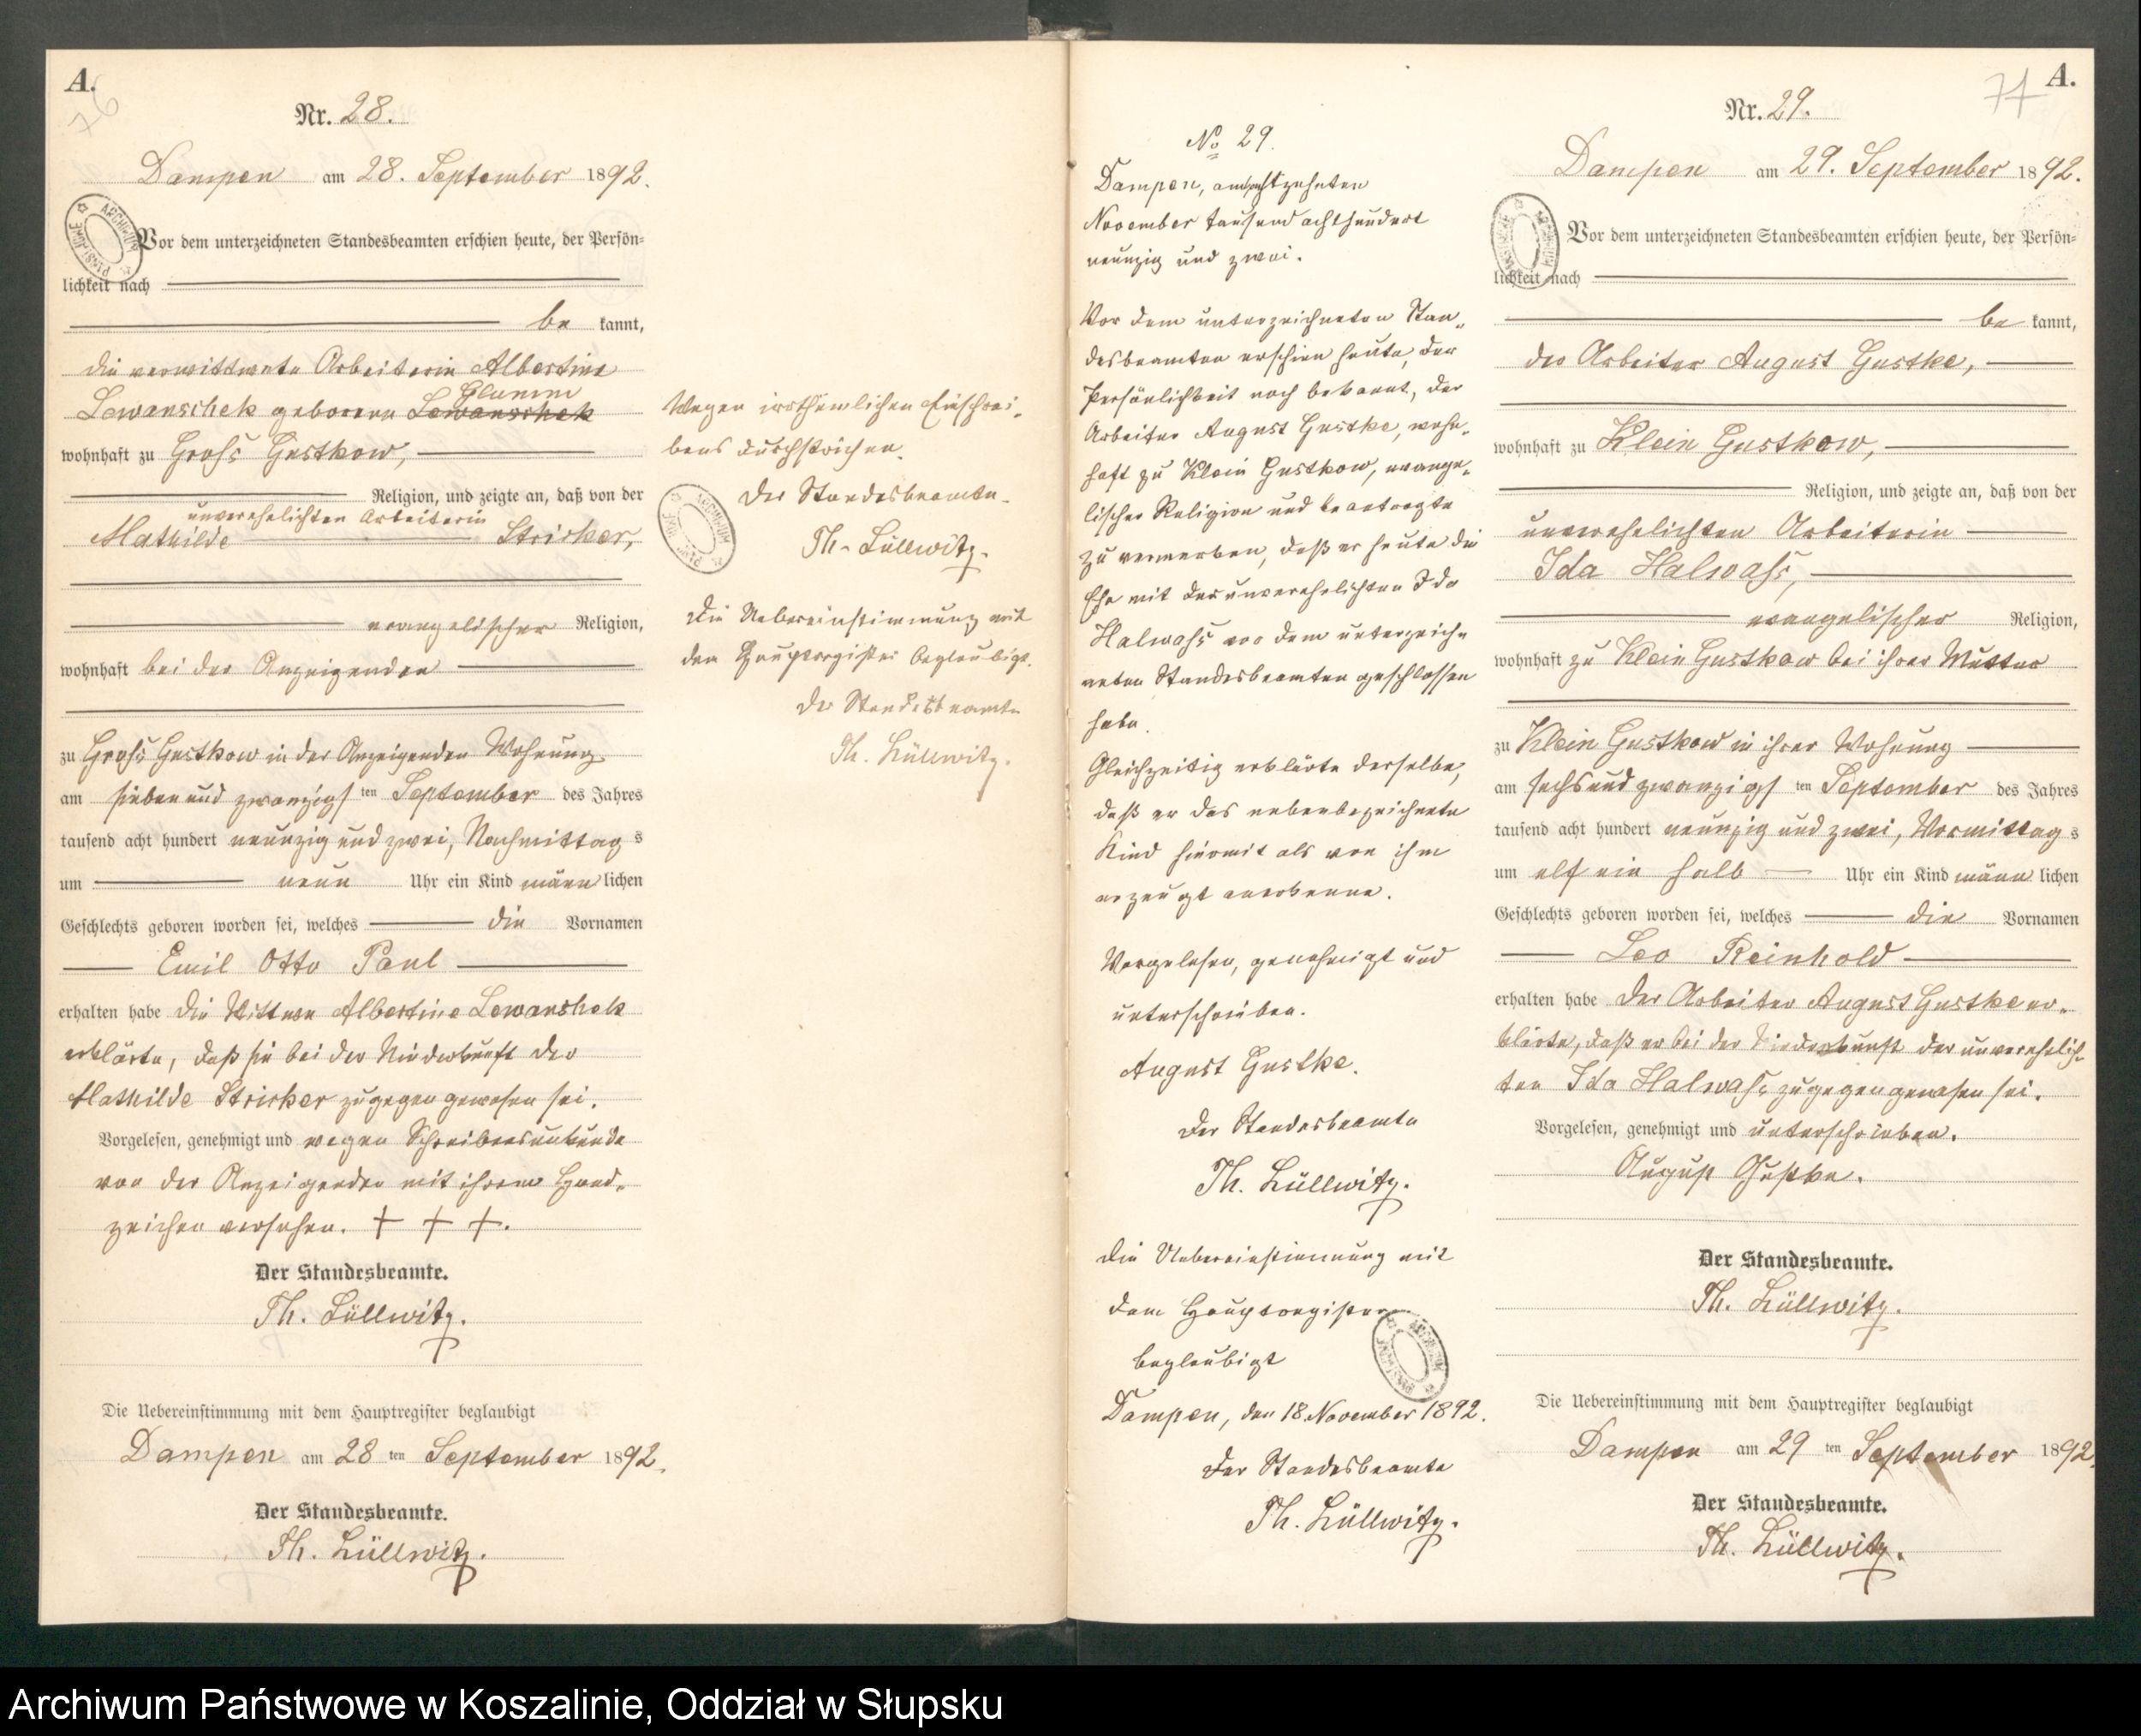 A.
76
Nr. 28.
Dampen am 28. September 1892.
Vor dem unterzeichneten Standesbeamten erschien heute, der Persön=
lichkeit nach
be kannt,
die verwittwete Arbeiterin Albertine
Glumm
Lewanscheck geborene Lewanscheck
wohnhaft zu Groß Gustkow,
Religion, und zeigte an, daß von der
unverehelichten Arbeiterin
Mathilde Stricker,
evangelischer Religion,
wohnhaft bei der Anzeigenden
zu Groß Gustkow in der Anzeigenden Wohnung
am sieben und zwanzigsten September des Jahres
tausend acht hundert neunzig und zwei, Nachmittags
um neun Uhr ein Kind männlichen
Geschlechts geboren worden sei, welches die Vornamen
Emil Otto Paul
erhalten habe die Wittwe Albertine Lewanscheck
erklärte, daß sie bei der Niederkunft der
Mathilde Stricker zugegen gewesen sei.
Vorgelesen, genehmigt und wegen Schreibensunkunde
von der Anzeigenden mit ihrem Hand-
zeichen versehen. + + +.
Der Standesbeamte.
Th. Lüllwitz.
Die Uebereinstimmung mit dem Hauptregister beglaubigt
Dampen am 28 ten September 1892.
Der Standesbeamte.
Th. Lüllwitz.
Wegen irrthümlichen Einschrei-
bens durchstrichen.
Der Standesbeamte.
Th. Lüllwitz.
Die Uebereinstimmung mit
dem Hauptregister beglaubigt.
Der Standesbeamte
Th. Lüllwitz.
No 29.
Dampen, am achtzehnten
November tausend achthundert
neunzig und zwei.
Vor dem unterzeichneten Stan-
desbeamten erschien heute, der
Persönlichkeit nach bekannt, der
Arbeiter August Gustke, wohn-
haft zu Klein Gustkow, evange-
lischer Religion und beantragte
zu vermerken, daß er heute die
Ehe mit der unverehelichten Ida
Halwaß vor dem unterzeich-
neten Standesbeamten geschlossen
habe.
Gleichzeitig erklärte derselbe,
daß er das nebenbezeichnete
Kind hiermit als von ihm
erzeugt anerkenne.
Vorgelesen, genehmigt und
unterschrieben.
August Gustke.
Der Standesbeamte
Th. Lüllwitz.
Die Uebereinstimmung mit
dem Hauptregister
beglaubigt
Dampen, den 18. November 1892.
Der Standesbeamte
Th. Lüllwitz.
A.
77
Nr. 29.
Dampen am 29. September 1892.
Vor dem unterzeichneten Standesbeamten erschien heute, der Persön=
lichkeit nach
be kannt,
der Arbeiter August Gustke,
wohnhaft zu Klein Gustkow,
Religion, und zeigte an, daß von der
unverehelichten Arbeiterin
Ida Halwaß,
evangelischer Religion,
wohnhaft zu Klein Gustkow bei ihrer Mutter
zu Klein Gustkow in ihrer Wohnung
am sechs und zwanzigsten September des Jahres
tausend acht hundert neunzig und zwei, Vormittags
um elf ein halb Uhr ein Kind männlichen
Geschlechts geboren worden sei, welches die Vornamen
Leo Reinhold
erhalten habe Der Arbeiter August Gustke er-
klärte, daß er bei der Niederkunft der unverehelich-
ten Ida Halwaß zugegen gewesen sei.
Vorgelesen, genehmigt und unterschrieben.
August Gustke.
Der Standesbeamte.
Th. Lüllwitz.
Die Uebereinstimmung mit dem Hauptregister beglaubigt
Dampen am 29 ten September 1892.
Der Standesbeamte.
Th. Lüllwitz.
Archiwum Państwowe w Koszalinie, Oddział w Słupsku